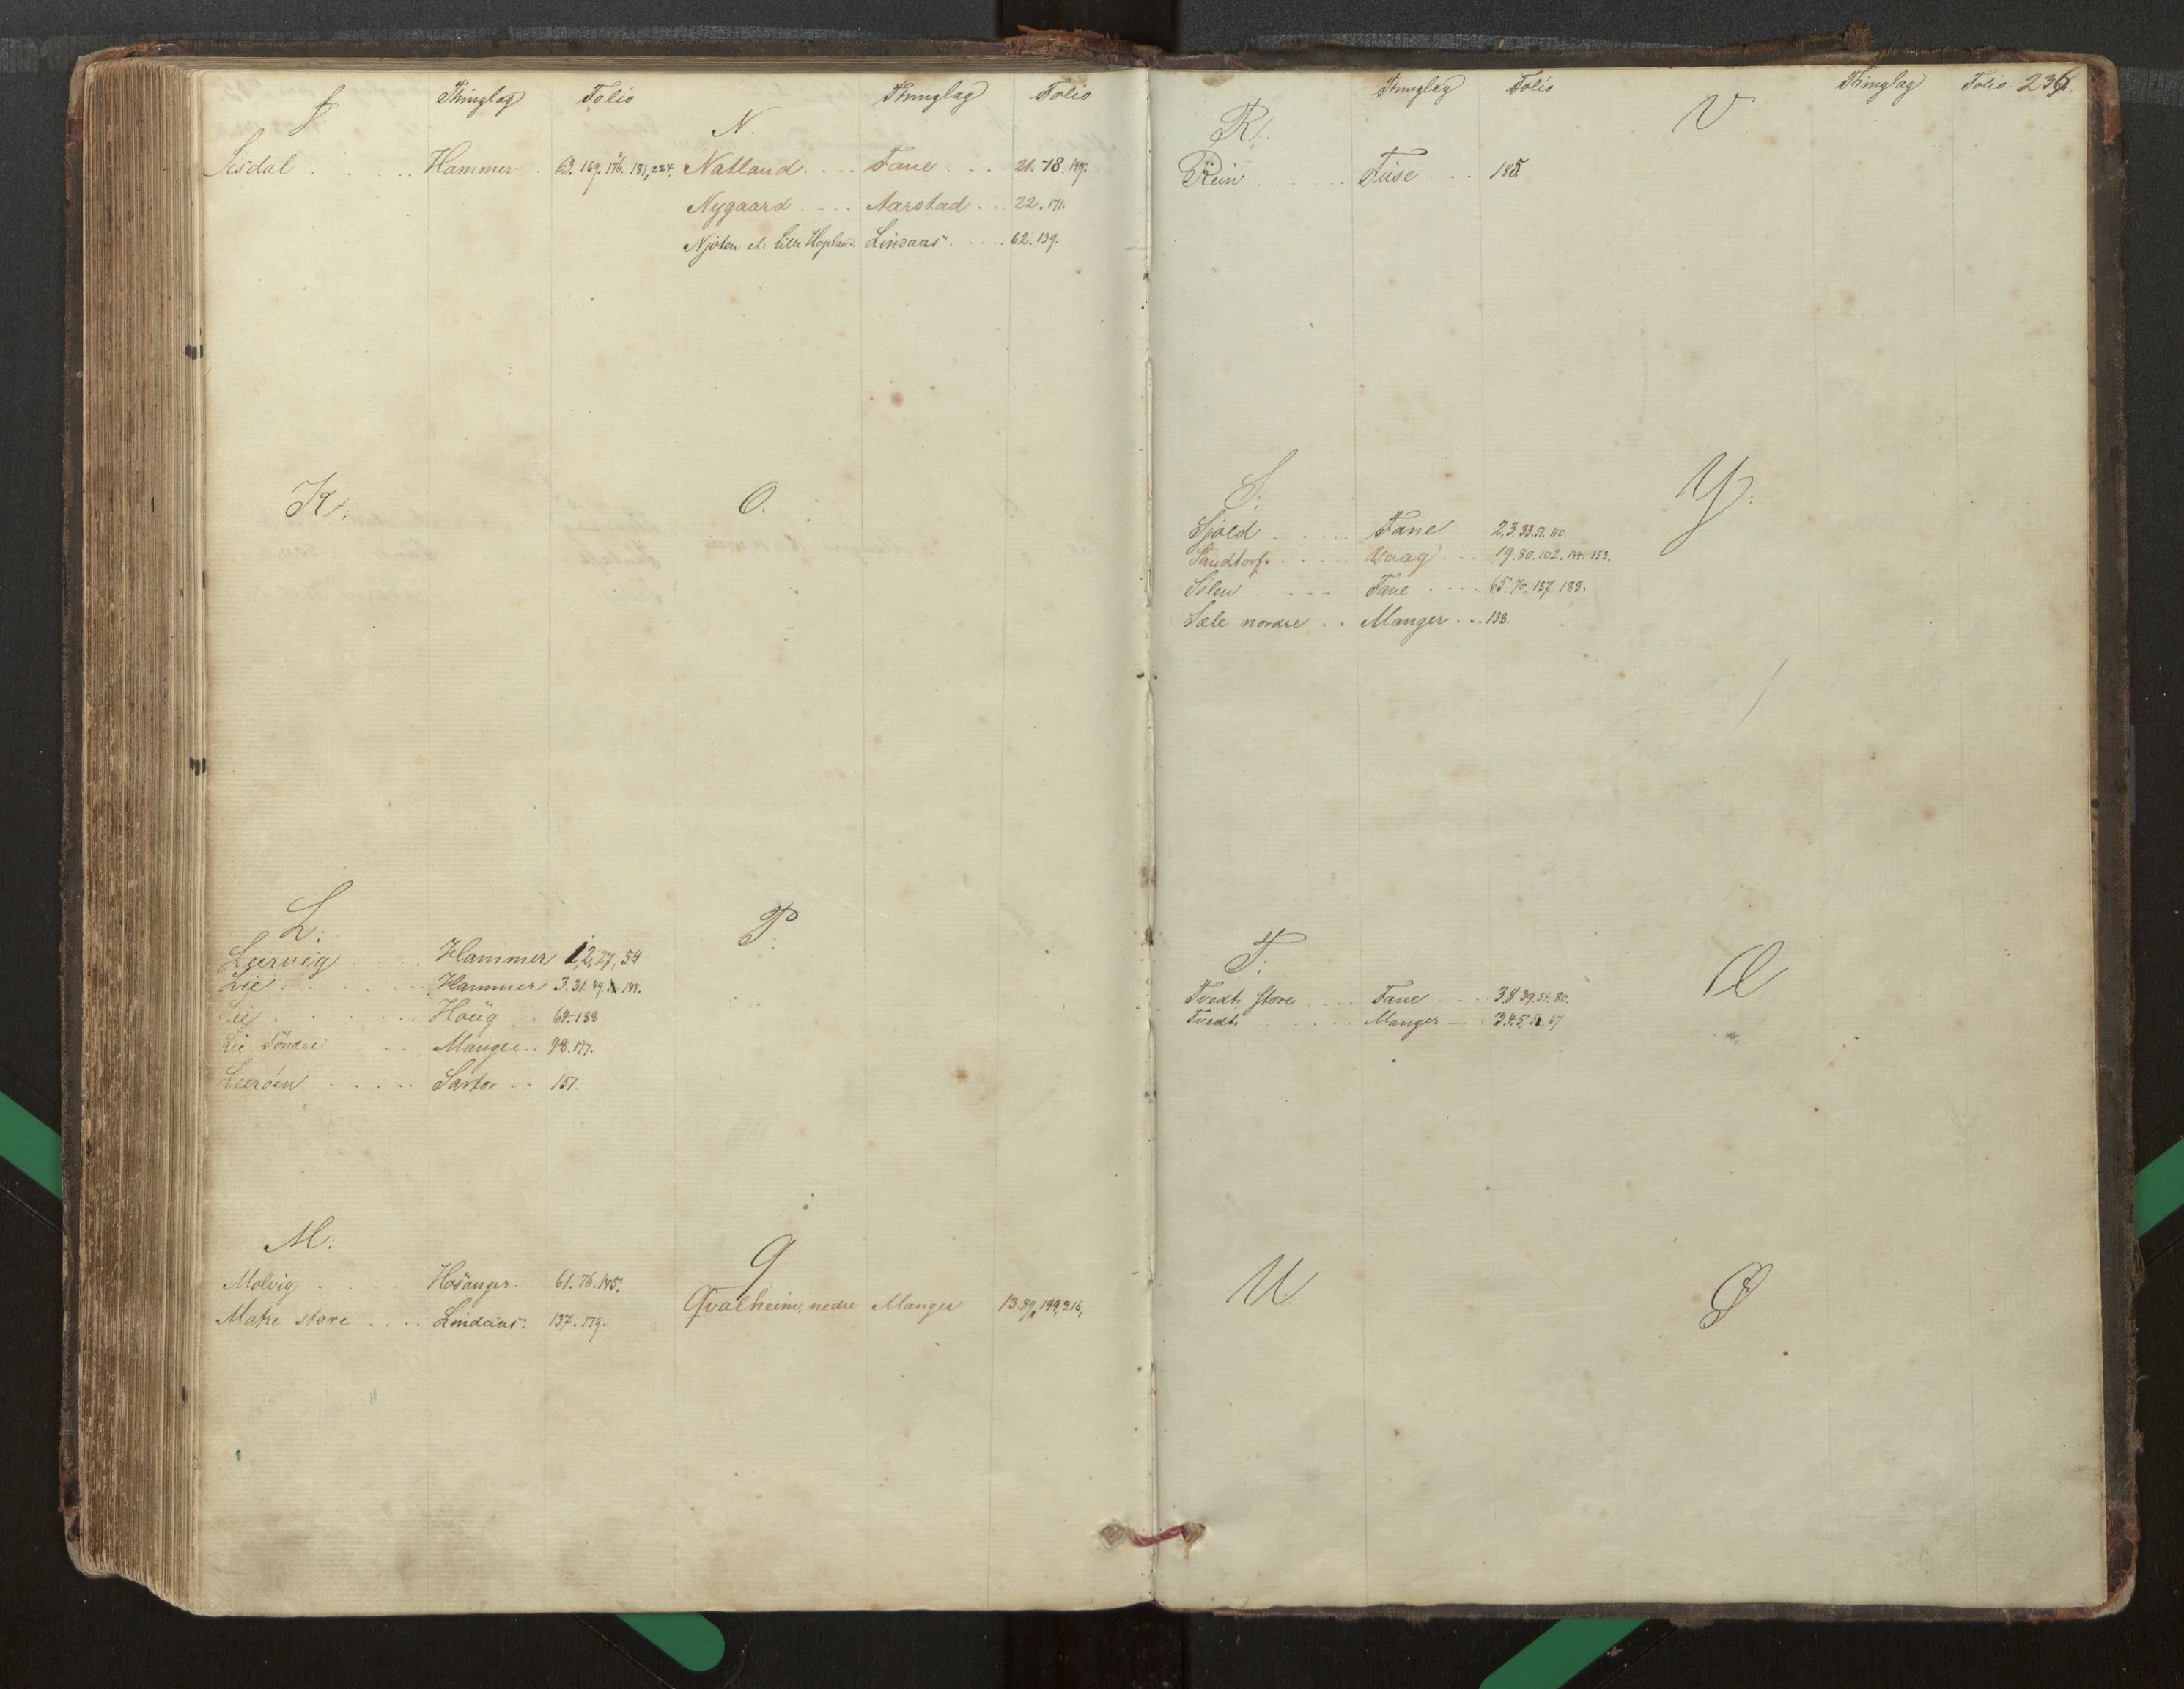 J. Thinglag Folio
Isdal . . . . Hammer . 63. 169. 176. 181, 224.
K.
L.
Leervig . . . . Hammer 12, 27, 54
Lie . . . . Hammer 3. 31. 49. 148.
Lie . . . . Houg . 64. 188
Lie Söndre . . Manger . . 98. 177.
Leeröen . . . . Sartor . . 151.
M.
Molvig . . . Hosanger. 61. 76. 145.
Matre store . . . . Lindaas. 137. 179.
N. Thinglag Folio
Natland . . . . Fane . . . 21. 78. 149.
Nygaard . . . . Aarstad . . . 22. 171.
Njöten el. Lille Hopland. Lindaas . . . . 62. 139.
O.
P.
Q
Qvalheim, nedre Manger 13. 89, 199, 216,
R. Thinglag Folio
Rein . . . . . . Fuse . . . 185.
S.
Sjöld . . . . . Fane 2, 3. 33. 51. 110.
Sandtorf . . . . . Haag . . . 19. 80. 102. 144. 153.
Sölen . . . . Fane . . . . 65. 70. 187. 188.
Sæle nordre . . Manger . . . 138.
T.
Tvedt, store . . . . Fane . . . . 38. 39. 54. 80.
Tvedt . . . . . . Manger . 34. 57, 67
U.
V Thinglag Folio. 236.
Y.
Æ
Ø